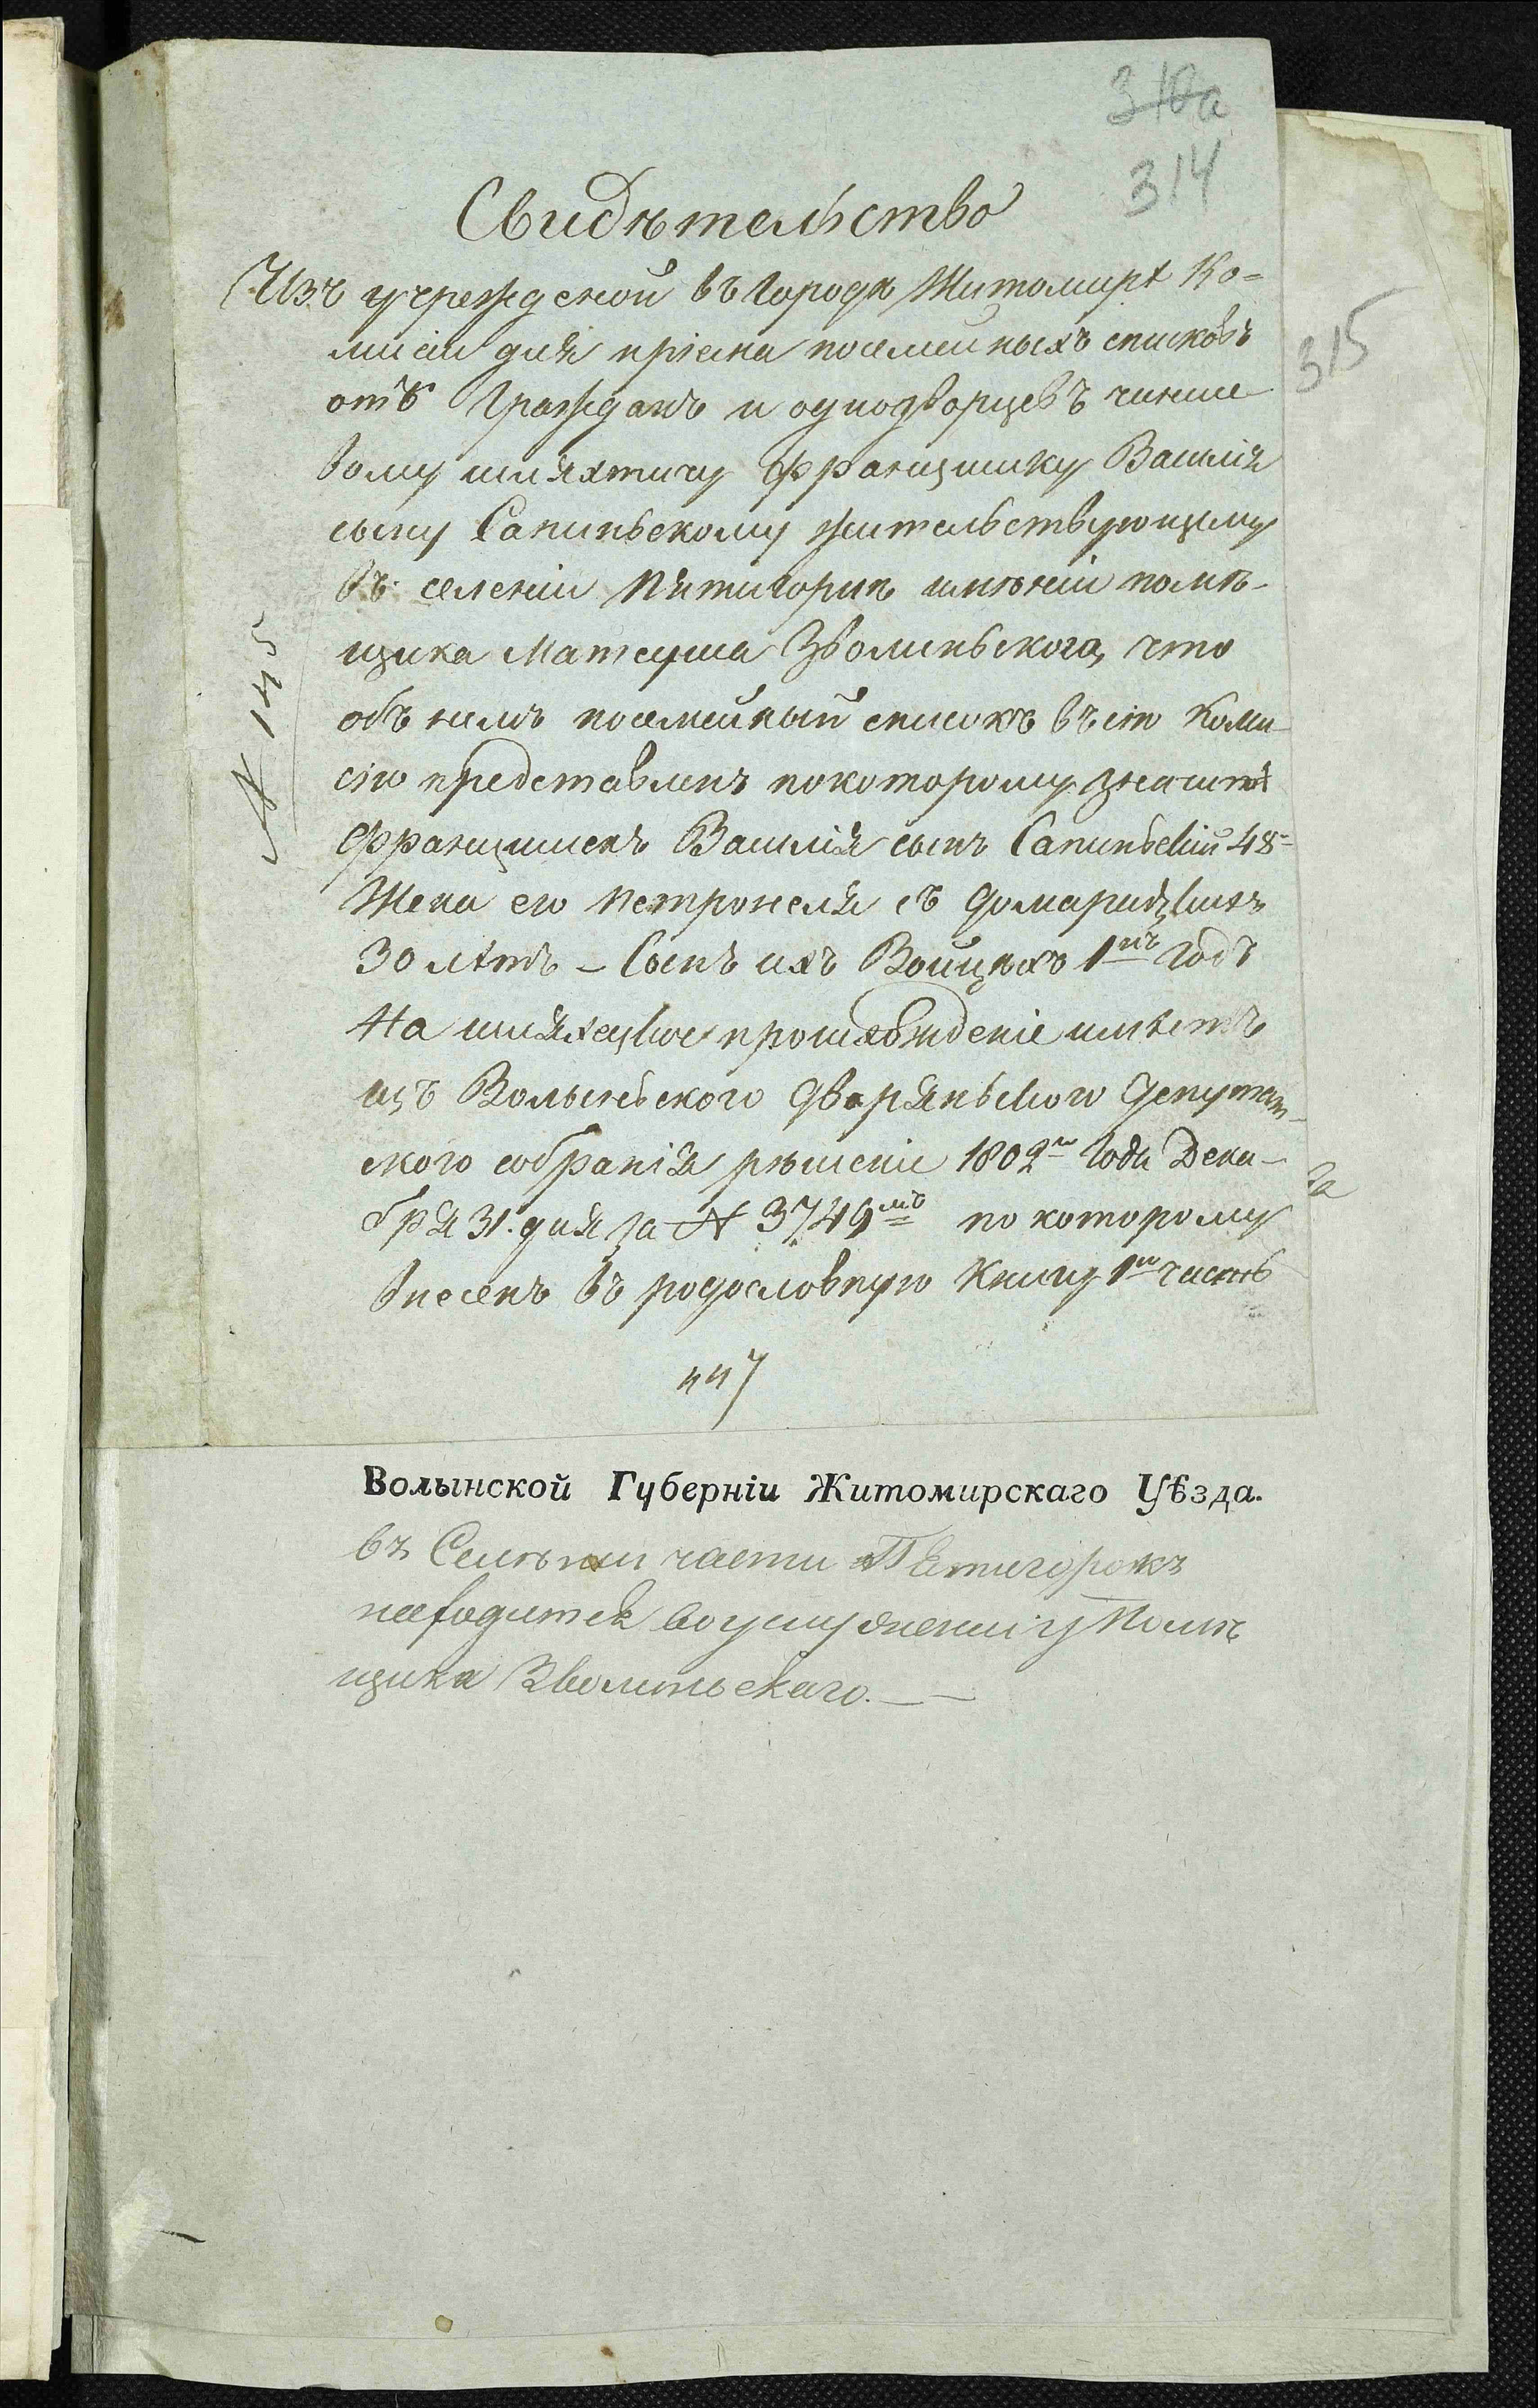 310а
314
Свидѣтельство
Изъ учрежденой въ городѣ Житомирѣ Ко=
мисіи для пріема посемейныхъ списковъ
отъ Гражданъ и однодворцевъ чинше
вому шляхтичу Францишку Василія
сыну Сапиньскому жительствующему
въ селеніи Пятигорикъ имѣніи помѣ-
щика Матеуша Зволиньского, что
объ немъ посемейный списокъ въ сію Коми
сію представленъ по которому значит
Францишекъ Василія сынъ Сапиньскій 48-
Жена его Петронеля съ
30 лѣтъ - Сынъ ихъ Войцѣхъ 1нъ годъ
На шляхецкое происхожденіе имѣетъ
изъ Волыньского Дворяньского Депутат-
ского собранія рѣшеніе 1802го Года Дека-
бря 31. дня за № 3749мъ по которому
внесенъ въ родословную Книгу 1ю часть
№ 145
315
за
447
Волынской Губерніи Житомирскаго Уѣзда.
въ части Пятигорокъ
находится во услуженіи у Помѣ
щика Зволиньскаго.